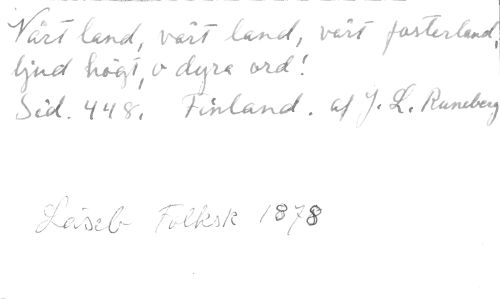 Vårt land, vårt land, vårt fosterland,
ljud högt, o dyra ord!
Sid. 448. Finland. af J. L. Runeberg
Läseb Folksk 1878